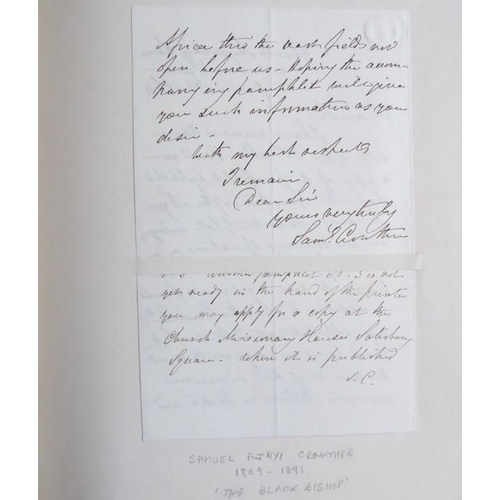 Africa thro the vast fields now
open before us - hoping the accom-
panying pamphlet will give
you such information as you
desire -
With my best respects
I remain
Dear Sir
Yours very truly
Saml. Crowther
P.S. pamphlet is not
yet ready in the hand of the printer
you may apply for a copy at the
Church Missionary House Salisbury
Square - when it is published
S. C.
SAMUEL AJAYI CROWTHER
1809 - 1891
'THE BLACK BISHOP'